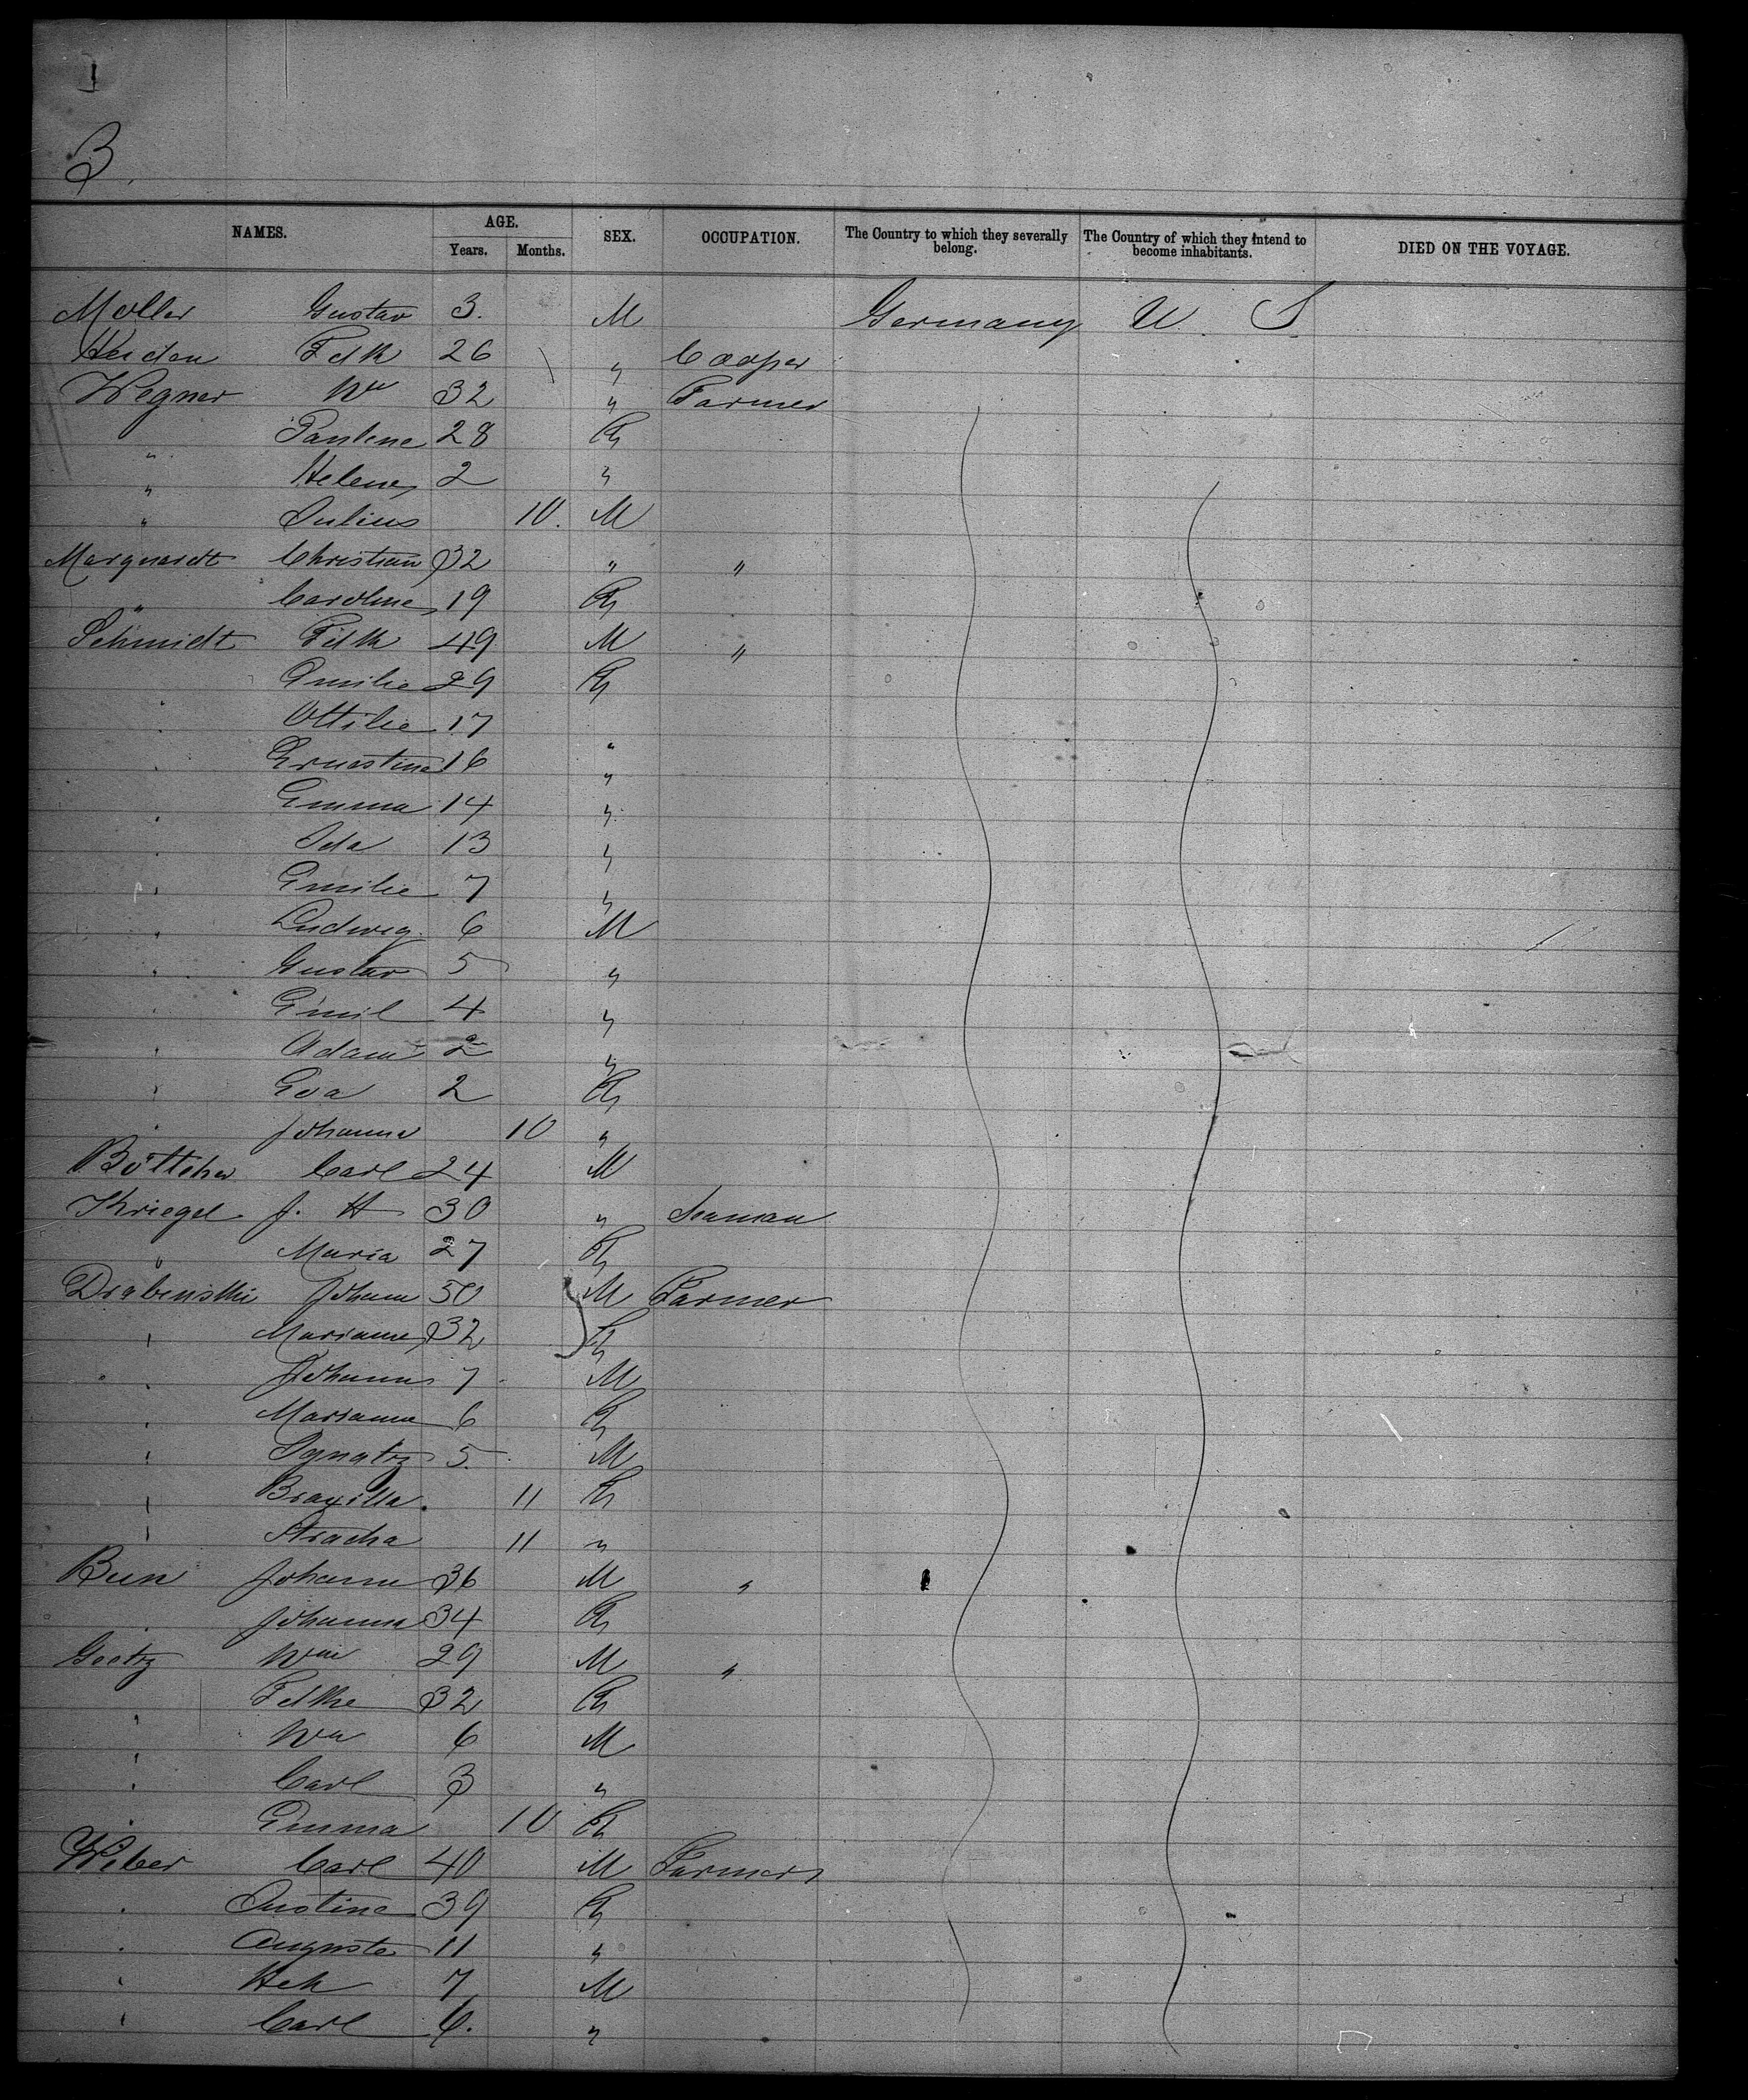 1
3.
NAMES. AGE. Years. Months. SEX. OCCUPATION. The Country to which they severally belong. The Country of which they intend to become inhabitants. DIED ON THE VOYAGE.
Moller Gustav 3. M Germany U. S
Heiden Fdk 26 " Cooper
Wegner Wm 32 " Farmer
" Pauline 28 F
" Helene 2 "
" Julius 10. M
Marquardt Christian 32 " "
" Caroline 19 F
Schmidt Fdk 49 M "
" Emilie 29 F
" Ottilie 17 "
" Ernestine 16 "
" Emma 14 "
" Ida 13 "
" Emilie 7 "
" Ludwig 6 M
" Gustav 5 "
" Emil 4 "
" Adam 2 "
" Eva 2 F
" Johanna 10 "
Böttcher Carl 24 M
Kriegel J. H 30 " Seaman
" Maria 27 F
Drabinski Johann 50 M Farmer
" Marianne 32 F
" Johann 7 M
" Marianna 6 F
" Ignatz 5 M
" 11 F
" 11 "
Johann 36 M "
" Johanna 34 F
Goetz Wm 29 M "
" Fdke 32 F
" Wm 6 M
" Carl 3 "
" Emma 10 F
Weber Carl 40 M Farmer
" Justine 39 F
" Auguste 11 "
" 7 M
" Carl 6. "